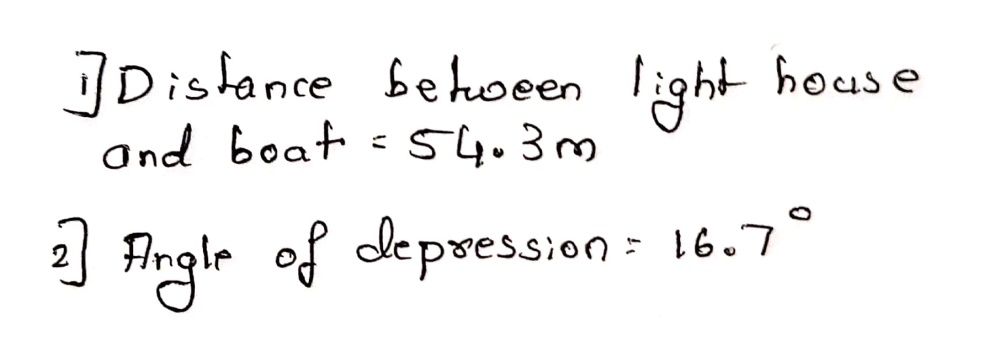 1] Distance between light house
and boat = 54.3m
2] Angle of depression = 16.7°